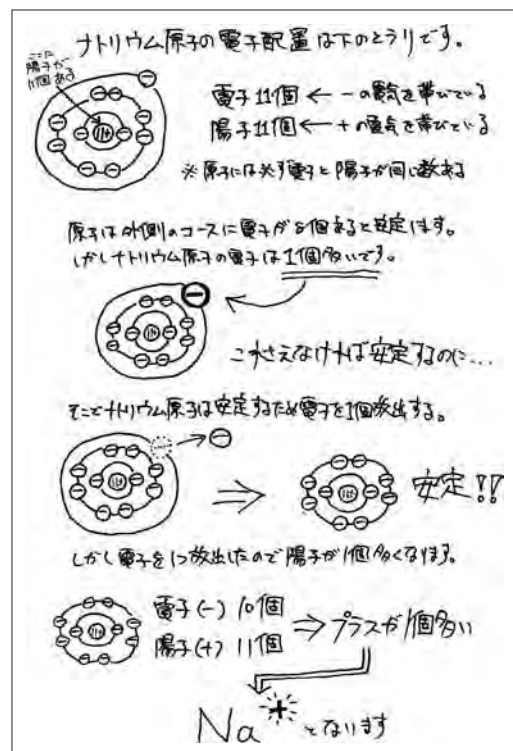 ナトリウム原子の電子配置は下のとうりです。
ここに
陽子が
11個ある
11+
電子11個 ← −の電気を帯びている
陽子11個 ← +の電気を帯びている
※原子には必ず電子と陽子が同じ数ある
原子は外側のコースに電子が8個あると安定します。
しかしナトリウム原子の電子は1個多いです。
11+
これさえなければ安定するのに…
そこでナトリウム原子は安定するため電子を1個放出する。
11+
11+
安定!!
しかし電子を1つ放出したので陽子が1個多くなります。
11+
電子(−) 10個
陽子(+) 11個
⇒ プラスが1個多い
Na+ となります